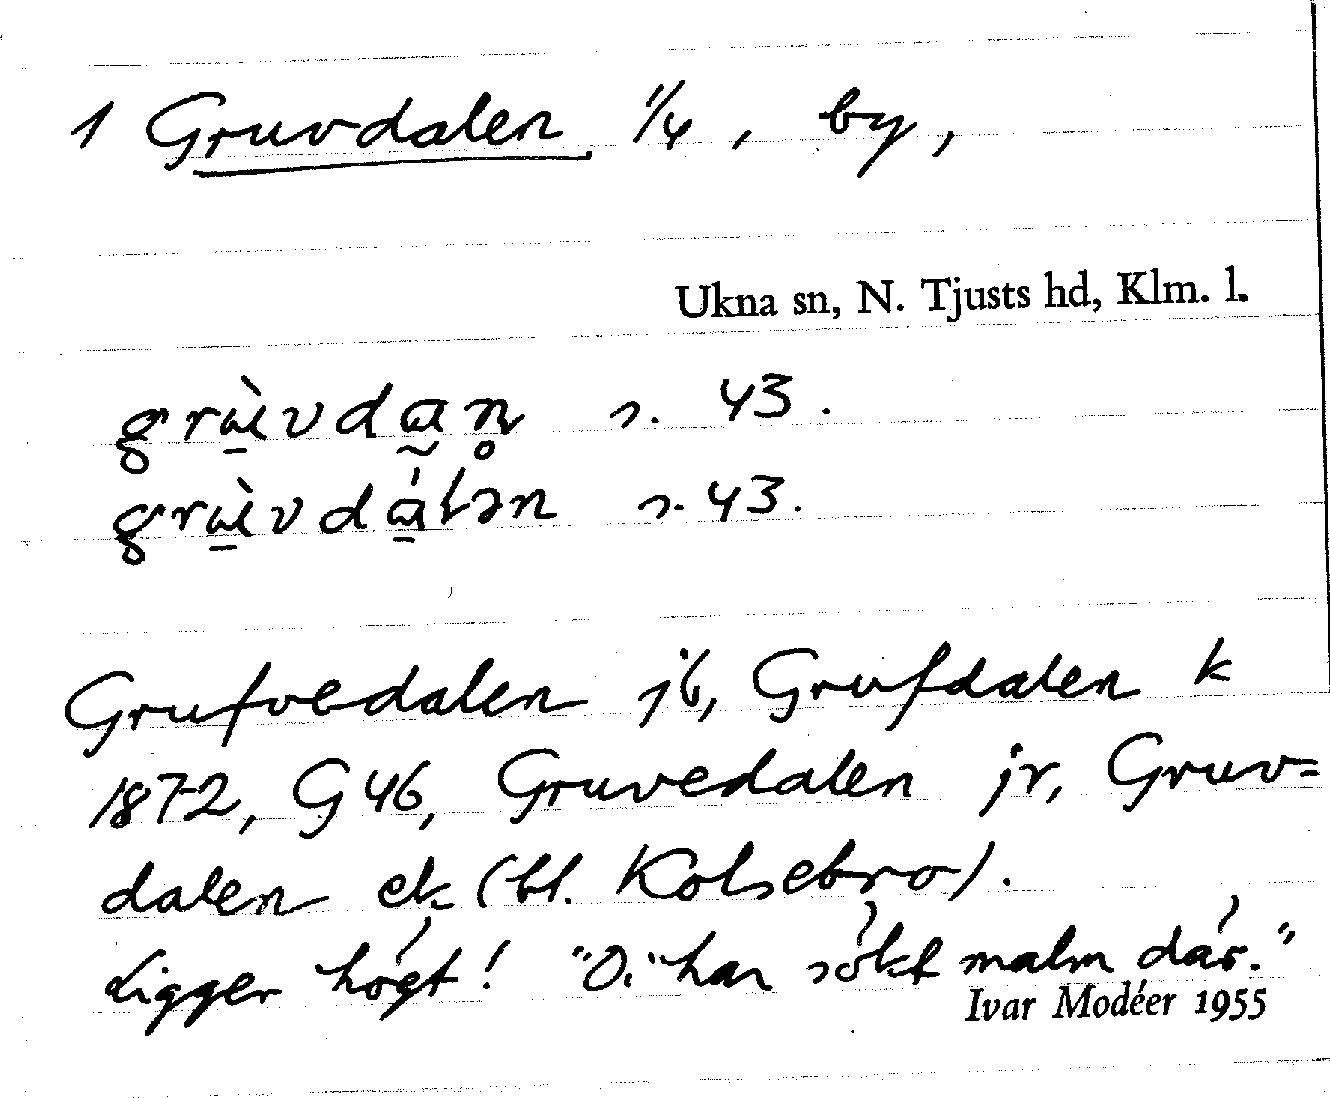 1 Gruvdalen 1/4, by,
Ukna sn, N. Tjusts hd, Klm. l.
grɯ̠̀vdɑ̰n̥ s. 43.
grɯ̠̀vdɑ̠́łən s. 43.
Grufvedalen jb, Grufdalen k
1872, G 46, Gruvedalen jr, Gruv=
dalen ek (bl. Kolsebro).
Ligger högt! "Di" har sökt malm där."
Ivar Modéer 1955